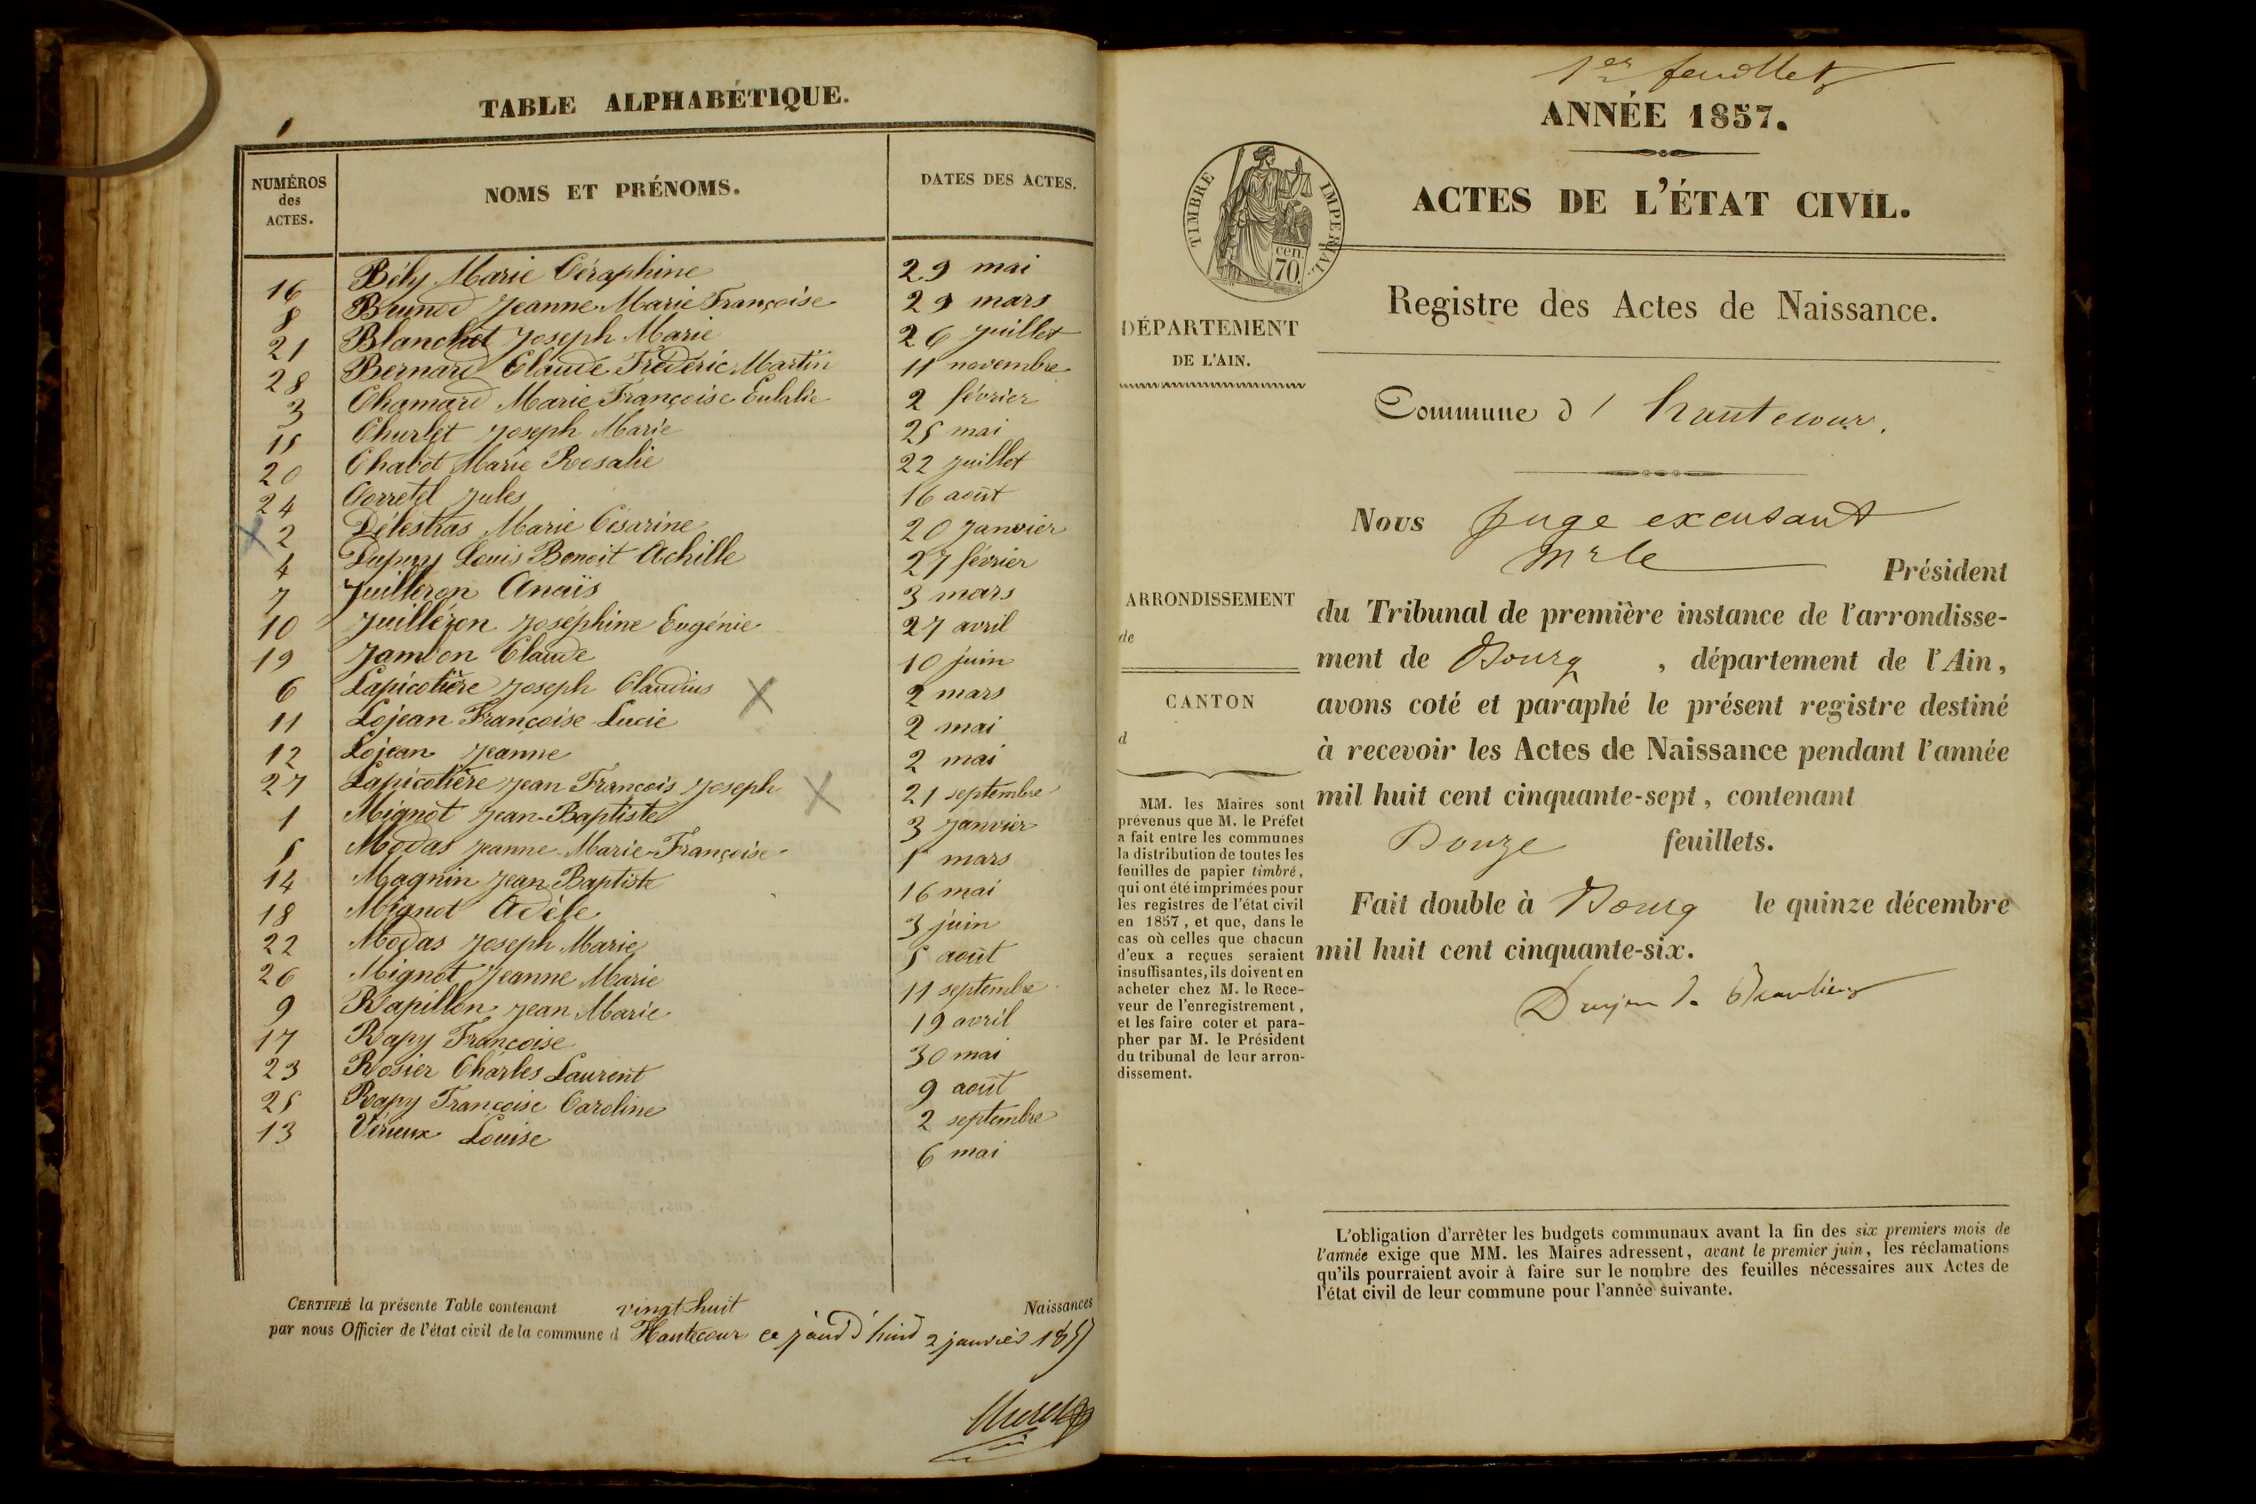 TABLE ALPHABÉTIQUE.
NUMÉROS des ACTES. NOMS ET PRÉNOMS. DATES DES ACTES.
16 Bély Marie Céraphine 29 mai
8 Brunod Jeanne Marie Françoise 29 mars
21 Blanchet Joseph Marie 26 juillet
28 Bernard Claude Frédéric Martin 11 novembre
3 Chamard Marie Françoise Eulalie 2 février
15 Churlet Joseph Marie 25 mai
20 Chabot Marie Rosalie 22 juillet
24 Corretel Jules 16 août
2 Délestras Marie Césarine 20 janvier
4 Dupuy Louis Benoit Achille 27 février
7 Juilleron Anaïs 3 mars
10 Juilléron Joséphine Eugénie 27 avril
19 Jambon Claude 10 juin
6 Lapicotière Joseph Claudius 2 mars
11 Lojean Françoise Lucie 2 mai
12 Lojean Jeanne 2 mai
27 Lapicotière Jean François Joseph 21 septembre
1 Mignot Jean-Baptiste 3 janvier
5 Modas Jeanne-Marie-Françoise 1 mars
14 Magnin Jean Baptiste 16 mai
18 Mignot Adèle 3 juin
22 Modas Joseph Marie 5 août
26 Mignot Jeanne Marie 11 septembre
9 Rapillon Jean Marie 19 avril
17 Rapy Françoise 30 mai
23 Rosier Charles Laurent 9 août
25 Rapy Françoise Caroline 2 septembre
13 Vérieux Louise 6 mai
CERTIFIÉ la présente Table contenant vingt huit Naissances
par nous Officier de l'état civil de la commune d Hautecour ce jourd'hui 2 janvier 1857
1er feuillet
ANNÉE 1857.
ACTES DE L'ÉTAT CIVIL.
TIMBRE IMPERIAL.
cen. 70.
Registre des Actes de Naissance.
DÉPARTEMENT
DE L'AIN.
Commune d' hautecour.
Nous juge excusant
Mr le Président
ARRONDISSEMENT
de
CANTON
d
du Tribunal de première instance de l'arrondisse-
ment de Bourg, département de l'Ain,
avons coté et paraphé le présent registre destiné
à recevoir les Actes de Naissance pendant l'année
mil huit cent cinquante-sept, contenant
Douze feuillets.
Fait double à Bourg le quinze décembre
mil huit cent cinquante-six.
MM. les Maires sont
prévenus que M. le Préfet
a fait entre les communes
la distribution de toutes les
feuilles de papier timbré,
qui ont été imprimées pour
les registres de l'état civil
en 1857, et que, dans le
cas où celles que chacun
d'eux a reçues seraient
insuffisantes, ils doivent en
acheter chez M. le Rece-
veur de l'enregistrement,
et les faire coter et para-
pher par M. le Président
du tribunal de leur arron-
dissement.
L'obligation d'arrêter les budgets communaux avant la fin des six premiers mois de
l'année exige que MM. les Maires adressent, avant le premier juin, les réclamations
qu'ils pourraient avoir à faire sur le nombre des feuilles nécessaires aux Actes de
l'état civil de leur commune pour l'année suivante.